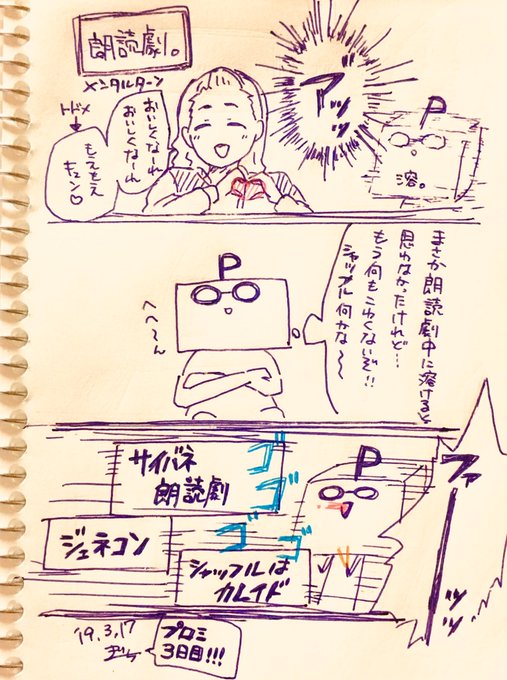 朗読劇。
メンタルターン
アッッ
P
溶。
おいしくなーれ
おいしくなーれ
トドメ
もえもえ
キュン♡
まさか朗読劇中に溶けると
思わなかったけれど…
もう何もこわくないぞ!!
シャッフル何かな〜〜
P
へへ〜ん
ファーーッッ
P
サイバネ
朗読劇
ゴゴゴゴ
ジェネコン
シャッフルは
カレイド
'19.3.17
プロミ
3日目!!!